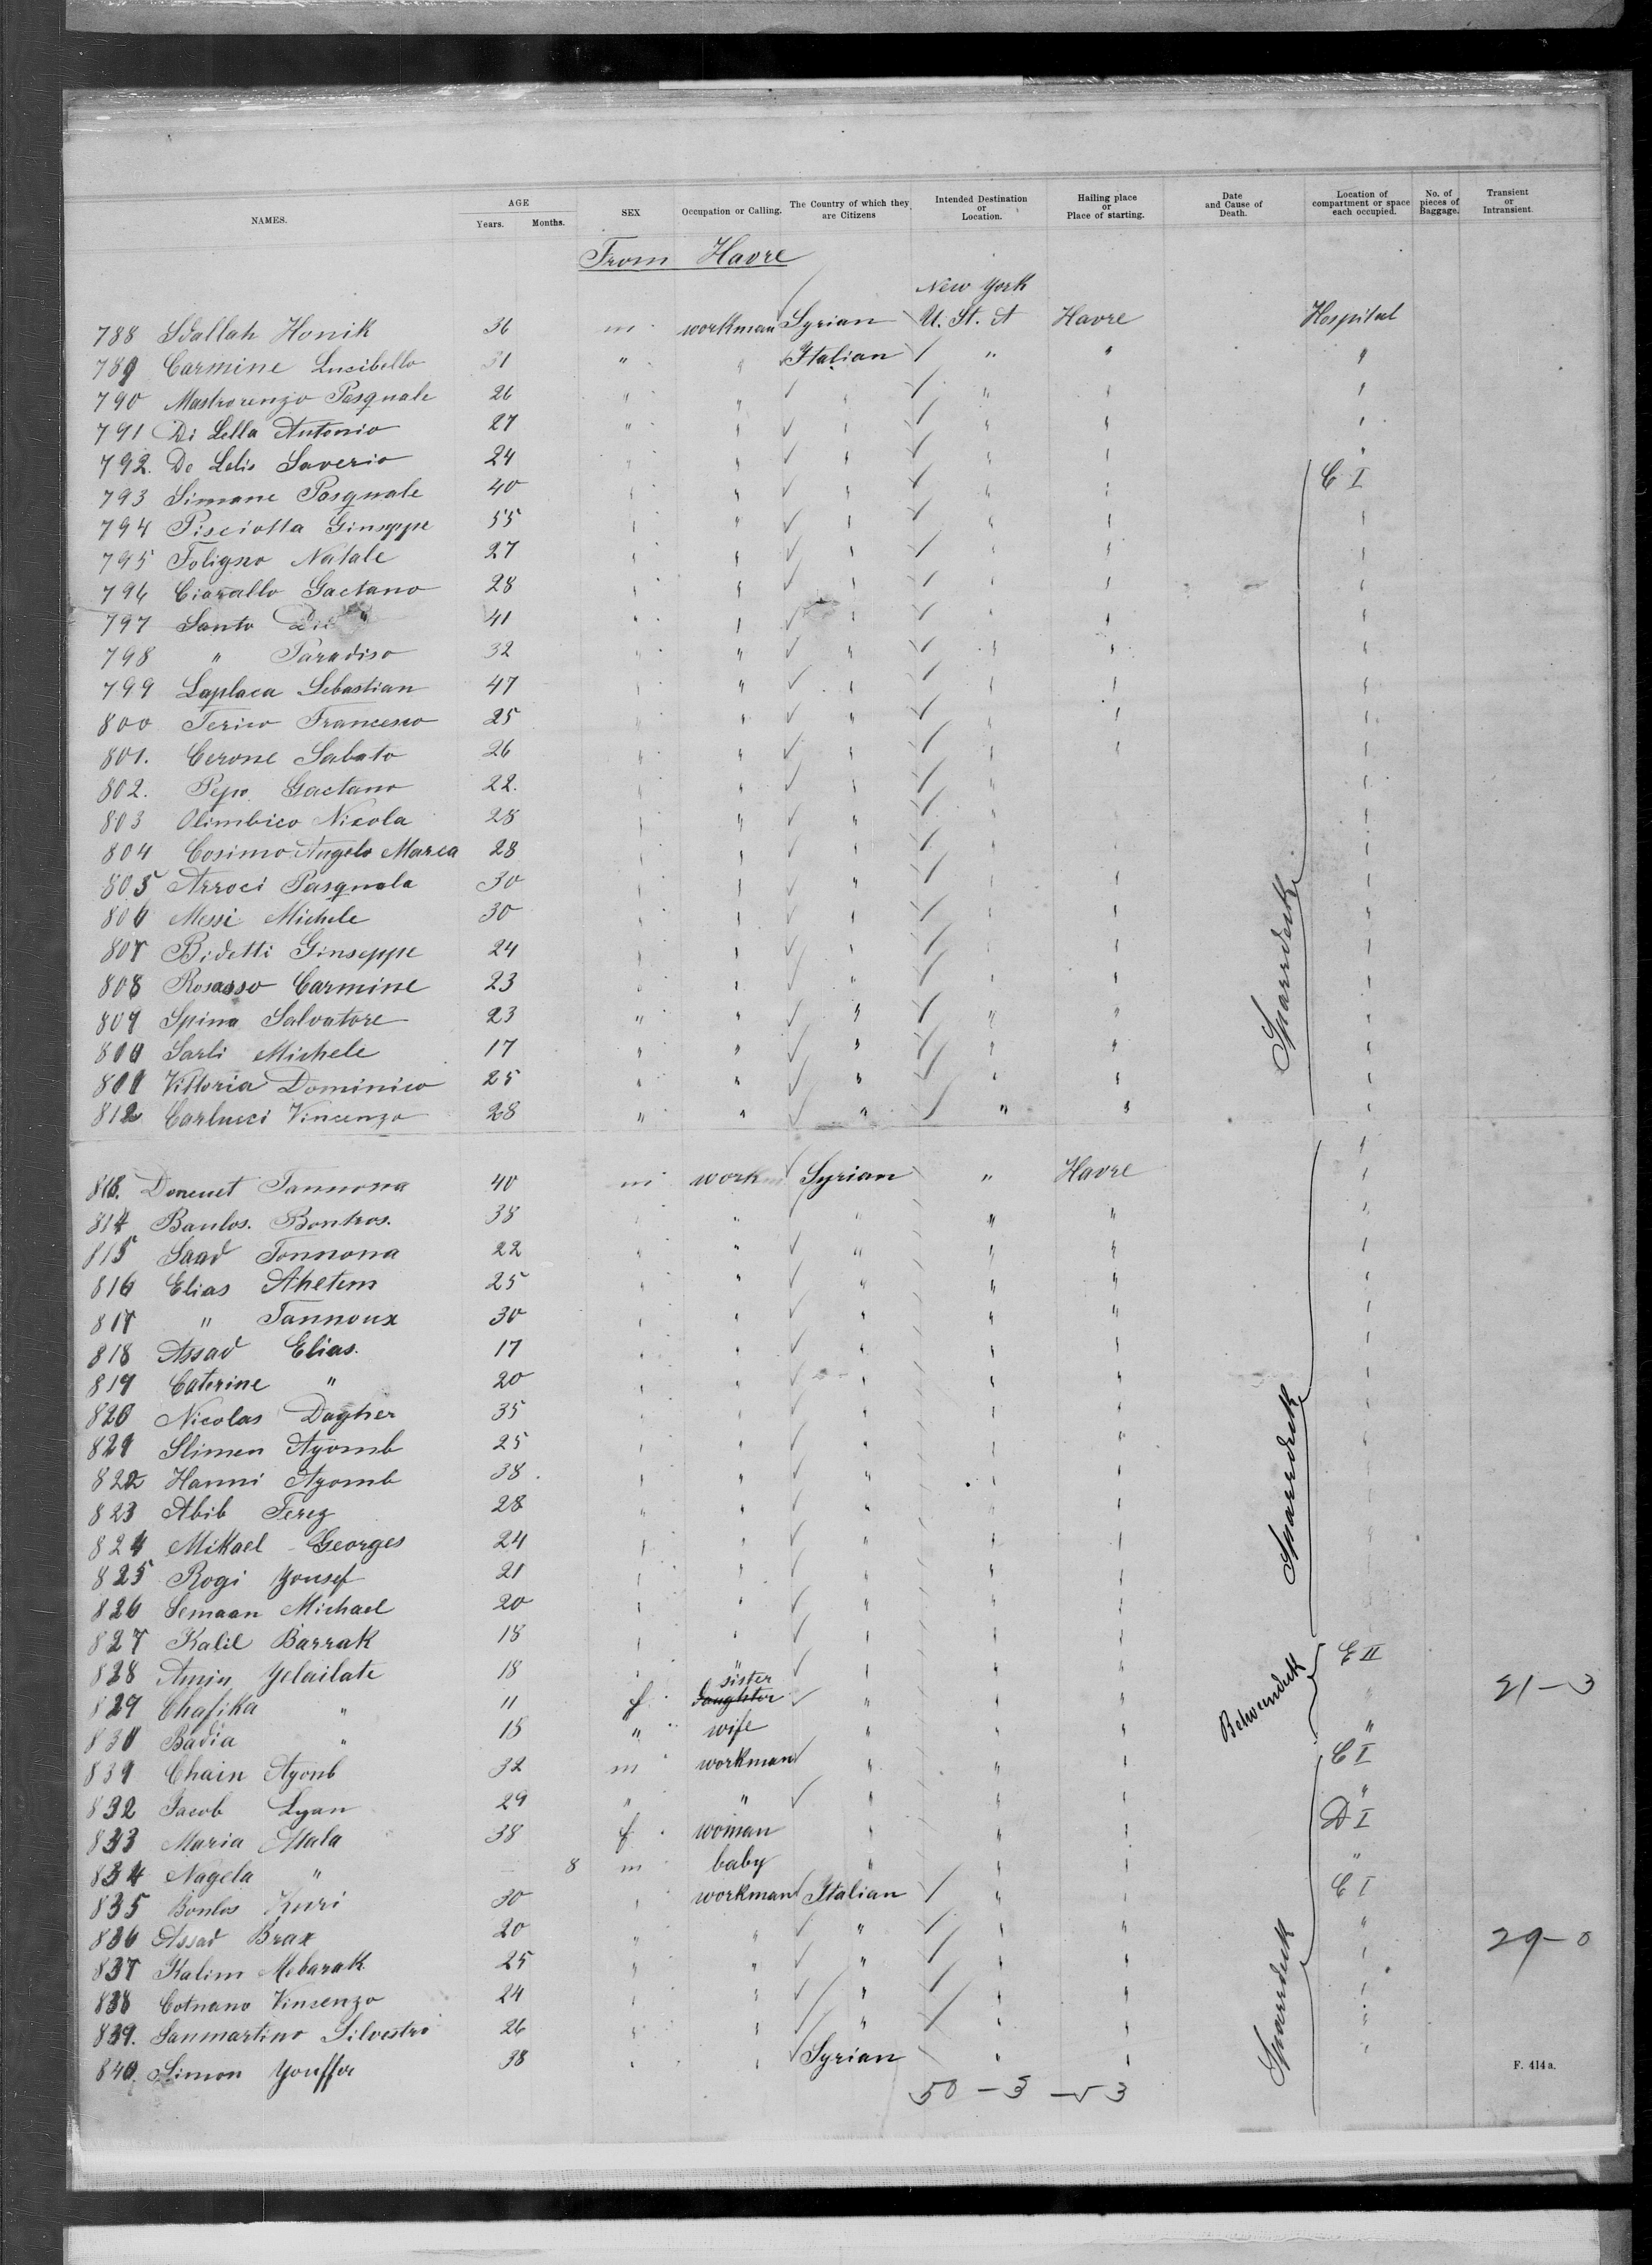 NAMES. AGE Years. Months. SEX Occupation or Calling. The Country of which they are Citizens Intended Destination or Location. Hailing place or Place of starting. Date and Cause of Death. Location of compartment or space each occupied. No. of pieces of Baggage. Transient or Intransient.
From Havre
New York
788 Sdallah Honik 36 m workman Syrian U. St. A Havre Hospital
789 Carmine Lucibello 31 " " Italian " " "
790 Mastrorenzo Pasquale 26 " " " " " "
791 Di Lella Antonio 27 " " " " " "
792. De Lelis Saverio 24 " " " " " "
793 Simone Pasquale 40 " " " " " C I
794 Pisciotta Ginseppe 55 " " " " " "
795 Foligno Natale 27 " " " " " "
796 Ciarallo Gaetano 28 " " " " " "
797 Santo 41 " " " " "
798 " Paradiso 32 " " " " " "
799 Laplaca Sebastian 47 " " " " " "
800 Terico Francesco 25 " " " " " "
801. Cerone Sabato 26 " " " " " "
802. Pepo Gaetano 22. " " " " "
803 Olimbico Nicola 28 " " " " " "
804 Cosimo Angelo Marea 28 " " " " " "
805 Arroci Pasquale 30 " " " " " "
806 Messi Michele 30 " " " " " "
807 Bidetti Ginseppe 24 " " " " " "
808 Rosasso Carmine 23 " " " " " "
809 Spina Salvatore 23 " " " " " "
810 Sarli Michele 17 " " " " " "
811 Vittoria Dominico 25 " " " " " "
812 Carlucci Vincenzo 28 " " " " " "
Spardeck
813. Tannona 40 m workm Syrian " Havre "
814 Baulos. Bontros. 38 " " " " " "
815 Saad Tonnona 22 " " " " " "
816 Elias Ahetem 25 " " " " " "
817 " Tannoux 30 " " " " " "
818 Assad Elias. 17 " " " " " "
819 Caterine " 20 " " " " " "
820 Nicolas Dagher 35 " " " " " "
821 Slimen Ayomb 25 " " " " " "
822 Hanni Ayomb 38. " " " " " "
823 Abib Ferez 28 " " " " " "
824 Mikael Georges 24 " " " " " "
825 Rogi Yousef 21 " " " " " "
826 Semaan Michael 20 " " " " " "
827 Kalil Barrak 18 " " " " "
Spardeck
828 Amin Yelailate 18 " " " " " E II
829 Chafika " 11 f sister daughter " " " " 21-3
830 Badia " 18 " wife " " " "
Betweendeck
831 Chain Ayonb 32 m workman " " " C I
832 Jacob Lyan 29 " " " " " "
833 Maria Atala 38 f woman " " " D I
834 Nagela " 8 m baby " " " "
835 Bonlos Kuri 30 " workman Italian " " C I
836 Assad Brax 20 " " " " " " 29-0
837 Kalim Mebarak 25 " " " " " "
838 Cotnano Vinsenzo 24 " " " " " "
839. Sanmartino Silvestro 26 " " " " " "
840. Simon Youffer 38 " " Syrian " " "
Spardeck
50 - 3 - 53
F. 414a.